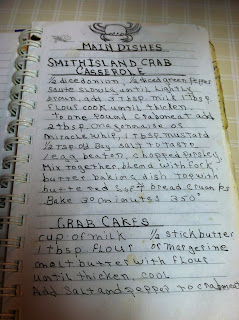 MAIN DISHES
SMITH ISLAND CRAB
CASSEROLE
½ diced onion, ½ diced green pepper
saute slowly until lightly
brown, add 3 tbsp milk 1 tbsp
flour cook until thicken.
To one pound crabmeat add
2 tbsp mayonnaise or
miracle whip, 1 tbsp mustard
½ tsp Old Bay salt to taste
1 egg beaten, chopped parsley,
Mix together, blend with fork
butter baking dish top with
buttered soft bread chunks
Bake 30 minutes 350°
CRAB CAKES
cup of milk ½ stick butter
1 tbsp flour or margerine
melt butter with flour
until thicken, cool
Add salt and pepper to crabmeat